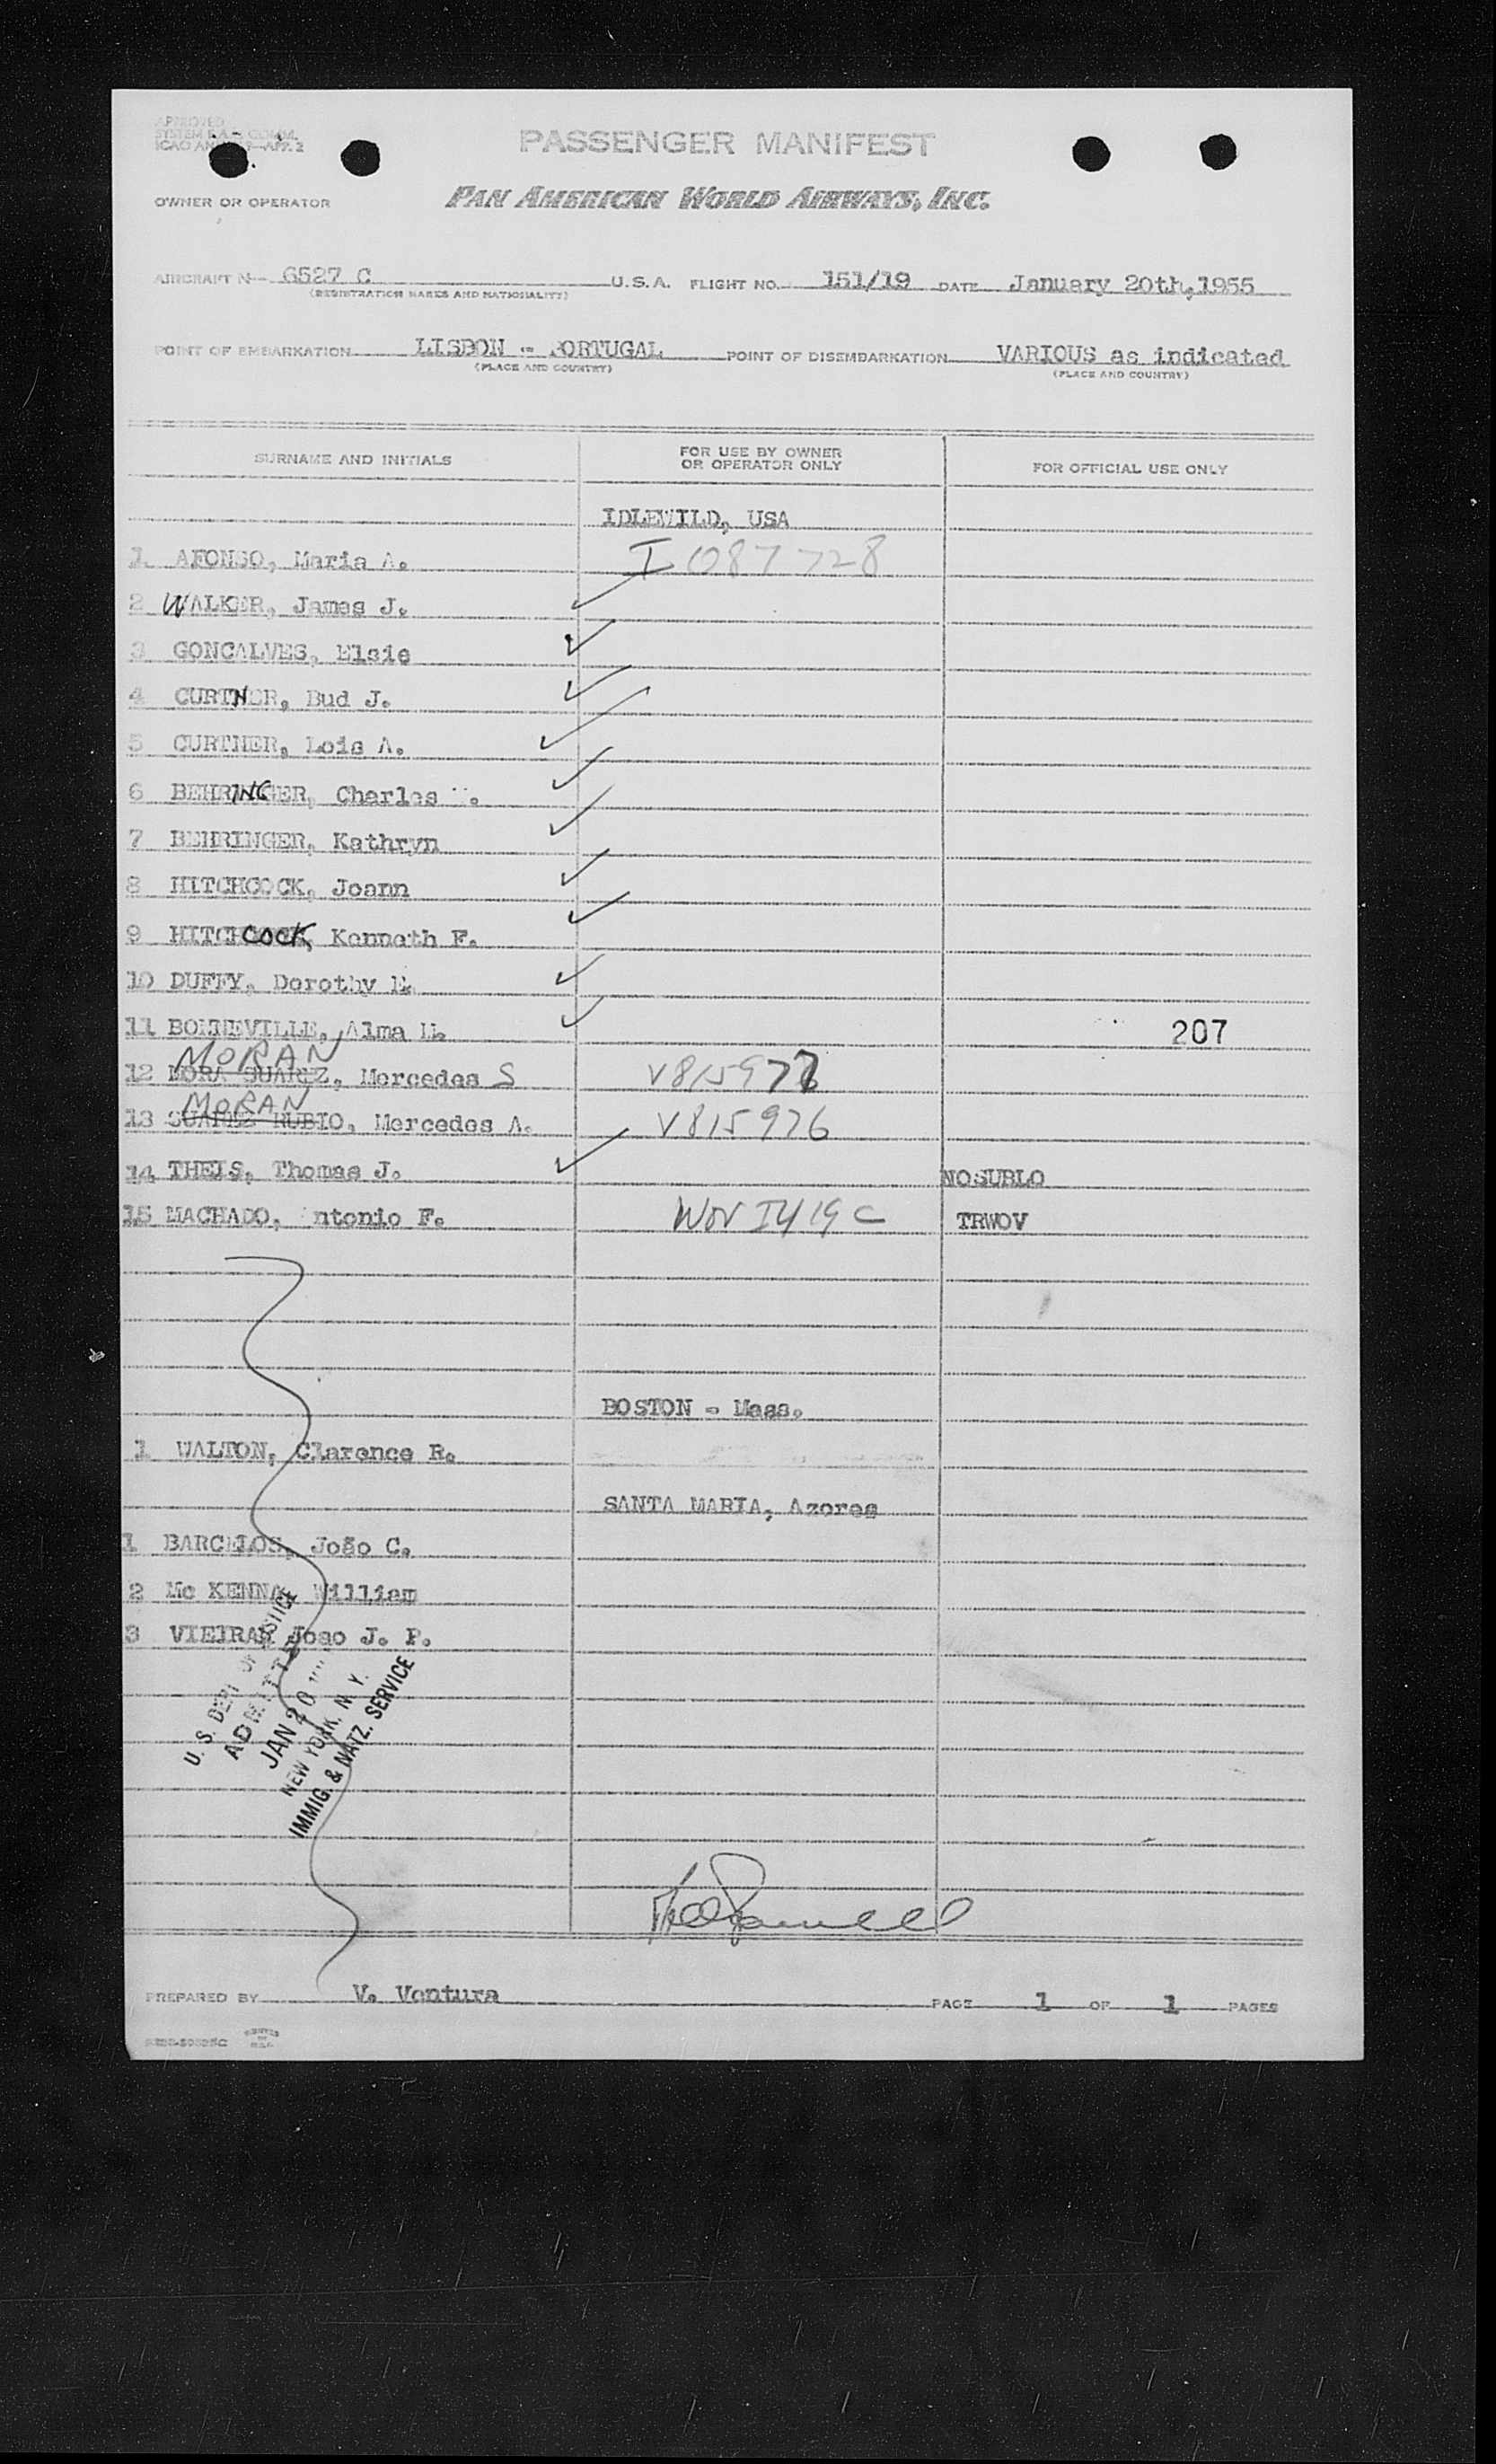 APPROVED
SYSTEM
ICAO
PASSENGER MANIFEST
OWNER OR OPERATOR
PAN AMERICAN WORLD AIRWAYS, INC.
AIRCRAFT N- 6527 C U.S.A. FLIGHT NO. 151/19 DATE January 20th, 1955
(REGISTRATION MARKS AND NATIONALITY)
POINT OF EMBARKATION LISBON - PORTUGAL POINT OF DISEMBARKATION VARIOUS as indicated
(PLACE AND COUNTRY) (PLACE AND COUNTRY)
SURNAME AND INITIALS FOR USE BY OWNER OR OPERATOR ONLY FOR OFFICIAL USE ONLY
IDLEWILD, USA
1 AFONSO, Maria A. I 087728
2 WALKER, James J.
3 GONCALVES, Elsie
4 CURTNER, Bud J.
5 CURTNER, Lois A.
6 BEHRINGER, Charles
7 BEHRINGER, Kathryn
8 HITCHCOCK, Joann
9 HITCHCOCK, Kenneth F.
10 DUFFY, Dorothy E.
11 BONNEVILLE, Alma 207
MORAN
12 MORA SUAREZ, Mercedes S V815977
MORAN
13 SUAREZ RUBIO, Mercedes A. V815976
14 THEIS, Thomas J. NOSUBLO
15 MACHADO, Antonio F. WOV TRWOV
BOSTON - Mass.
1 WALTON, Clarence R.
SANTA MARIA, Azores
1 BARCELOS, João C.
2 Mc KENNA, William
3 VIEIRA, Joao J. P.
U. S. DEPT OF JUSTICE
ADMITTED
JAN 20
NEW YORK, N. Y.
IMMIG. & NATZ. SERVICE
PREPARED BY V. Ventura PAGE 1 OF 1 PAGES